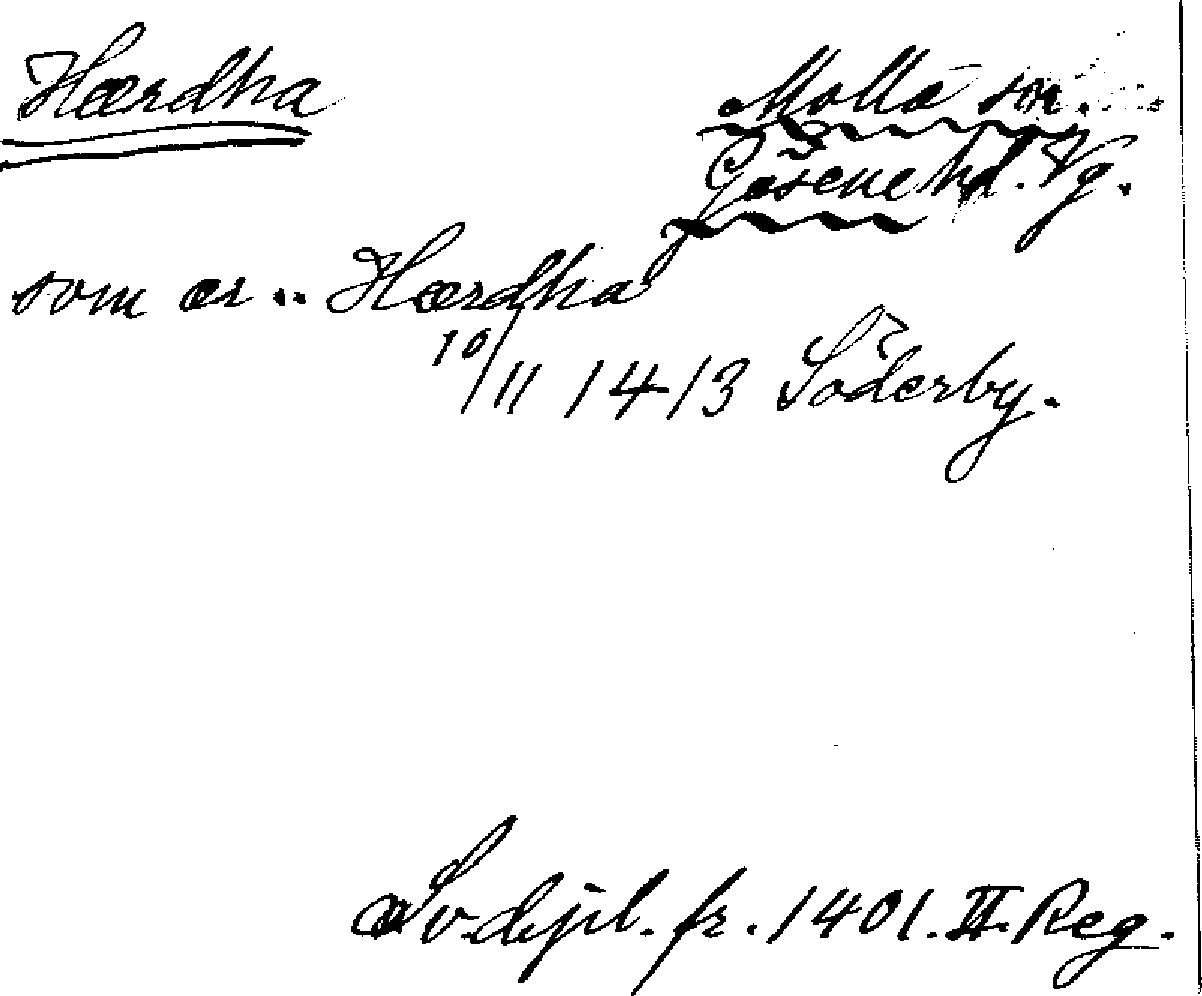 Hærdha
Molla sn.
Gäsene hd. Vg.
som ær .. Hærdha
10/11 1413 Söderby.
Sv. dipl. fr. 1401. II. Reg.